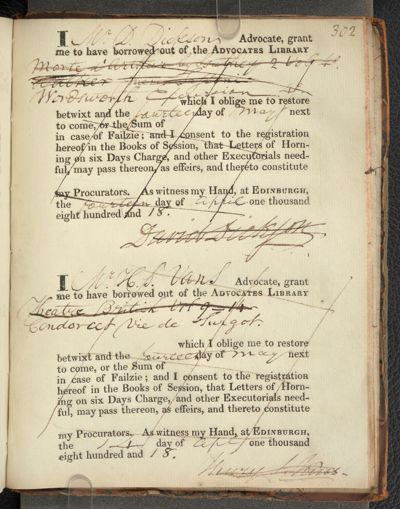 302
I Mr D Dickson Advocate, grant
me to have borrowed out of the ADVOCATES LIBRARY
Morte d'Arthur by 2 vols
Wordsworth Excursion
which I oblige me to restore
betwixt and the fourteen day of May next
to come, or the Sum of
in case of Failzie; and I consent to the registration
hereof in the Books of Session, that Letters of Horn-
ing on six Days Charge, and other Executorials need-
ful, may pass thereon, as effeirs, and thereto constitute
my Procurators. As witness my Hand, at EDINBURGH,
the fourteen day of April one thousand
eight hundred and 18.
David Dickson
I Mr H. S. Vans Advocate, grant
me to have borrowed out of the ADVOCATES LIBRARY
Theatre British Vol 9 - 14
Condorcet Vie de Turgot.
which I oblige me to restore
betwixt and the fourteen day of May next
to come, or the Sum of
in case of Failzie; and I consent to the registration
hereof in the Books of Session, that Letters of Horn-
ing on six Days Charge, and other Executorials need-
ful, may pass thereon, as effeirs, and thereto constitute
my Procurators. As witness my Hand, at EDINBURGH,
the 14 day of April one thousand
eight hundred and 18.
Henry